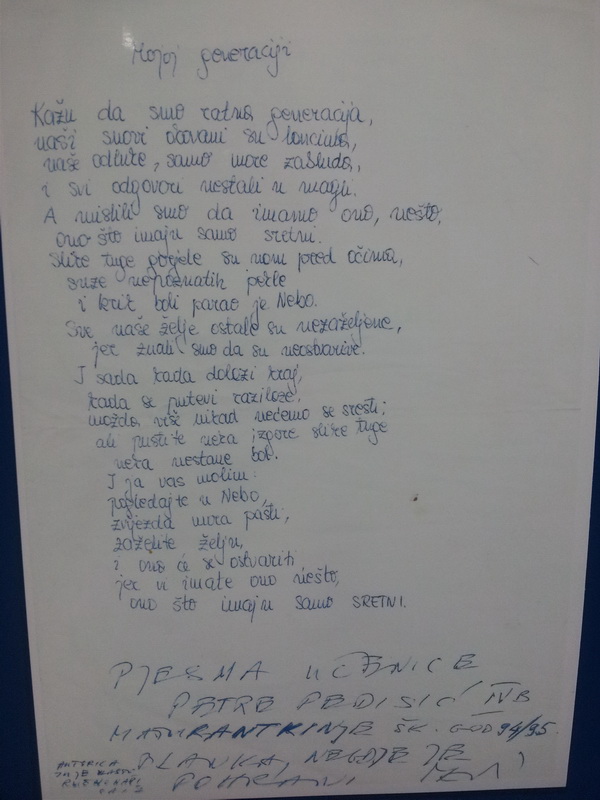 Mojoj generaciji
Kažu da smo ratna generacija,
naši snovi okovani su lancima,
naše odluke, samo more zabluda,
i svi odgovori nestali u magli.
A mislili smo da imamo ono, nešto,
ono što imaju samo sretni.
Slike tuge gorjele su nam pred očima,
suze nepoznatih pekle
i krik boli parao je Nebo.
Sve naše želje ostale su nezaželjene,
jer znali smo da su neostvarive.
I sada kada dolazi kraj,
kada se putevi razilaze,
možda više nikad nećemo se sresti;
ali pustite neka izgore slike tuge
neka nestane bol.
I ja vas molim:
pogledajte u Nebo,
zvijezda mora pasti,
zaželite želju,
i ono će se ostvariti
jer vi imate ono nešto,
ono što imaju samo SRETNI.
PJESMA UČENICE
PETRE PEDISIĆ IVB
MATURANTKINJE ŠK. GOD 94/95.
AUTORICA